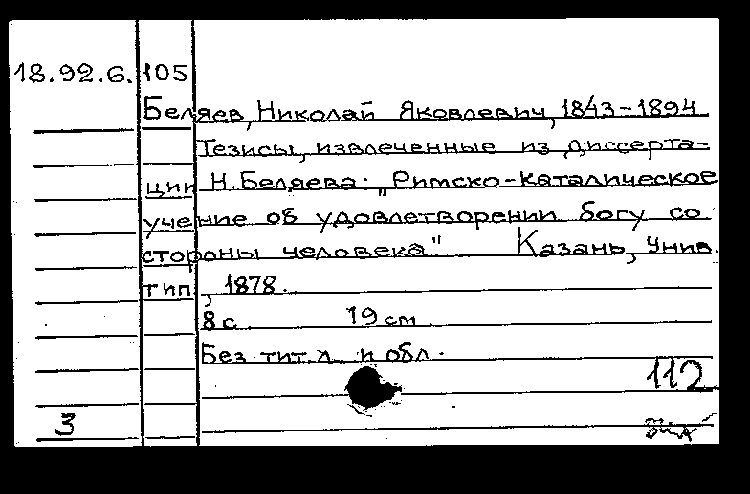 18.92.6. 105
Беляев, Николай Яковлевич, 1843-1894
Тезисы, извлеченные из диссерта-
ции Н. Беляева: „Римско-каталическое
учение об удовлетворении богу со
стороны человека" Казань, Унив.
тип, 1878.
8 с 19 см
Без тит. л. и обл.
112
3